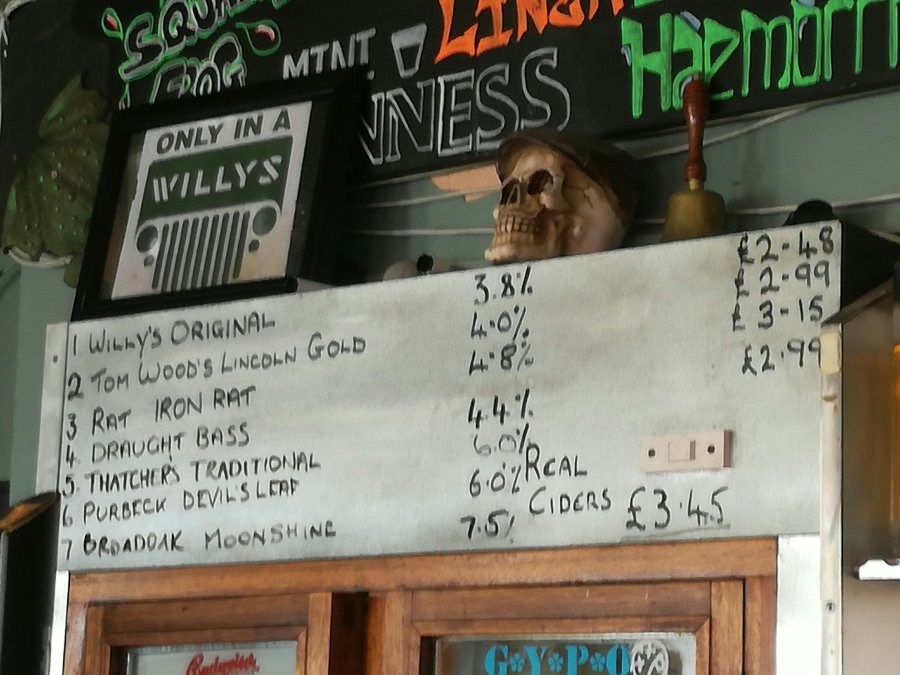 MINT
NNESS
Haemorr
ONLY IN A
WILLYS
1 WILLY'S ORIGINAL 3.8% £2-48
2 TOM WOOD'S LINCOLN GOLD 4.0% £2-99
3 RAT IRON RAT 4.8% £3-15
4. DRAUGHT BASS 4.4% £2.99
5. THATCHER'S TRADITIONAL 6.0%
6 PURBECK DEVIL'S LEAF 6.0%
7 BROADOAK MOONSHINE 7.5%
REAL
CIDERS £3.45
Budweiser
G*Y*P*O